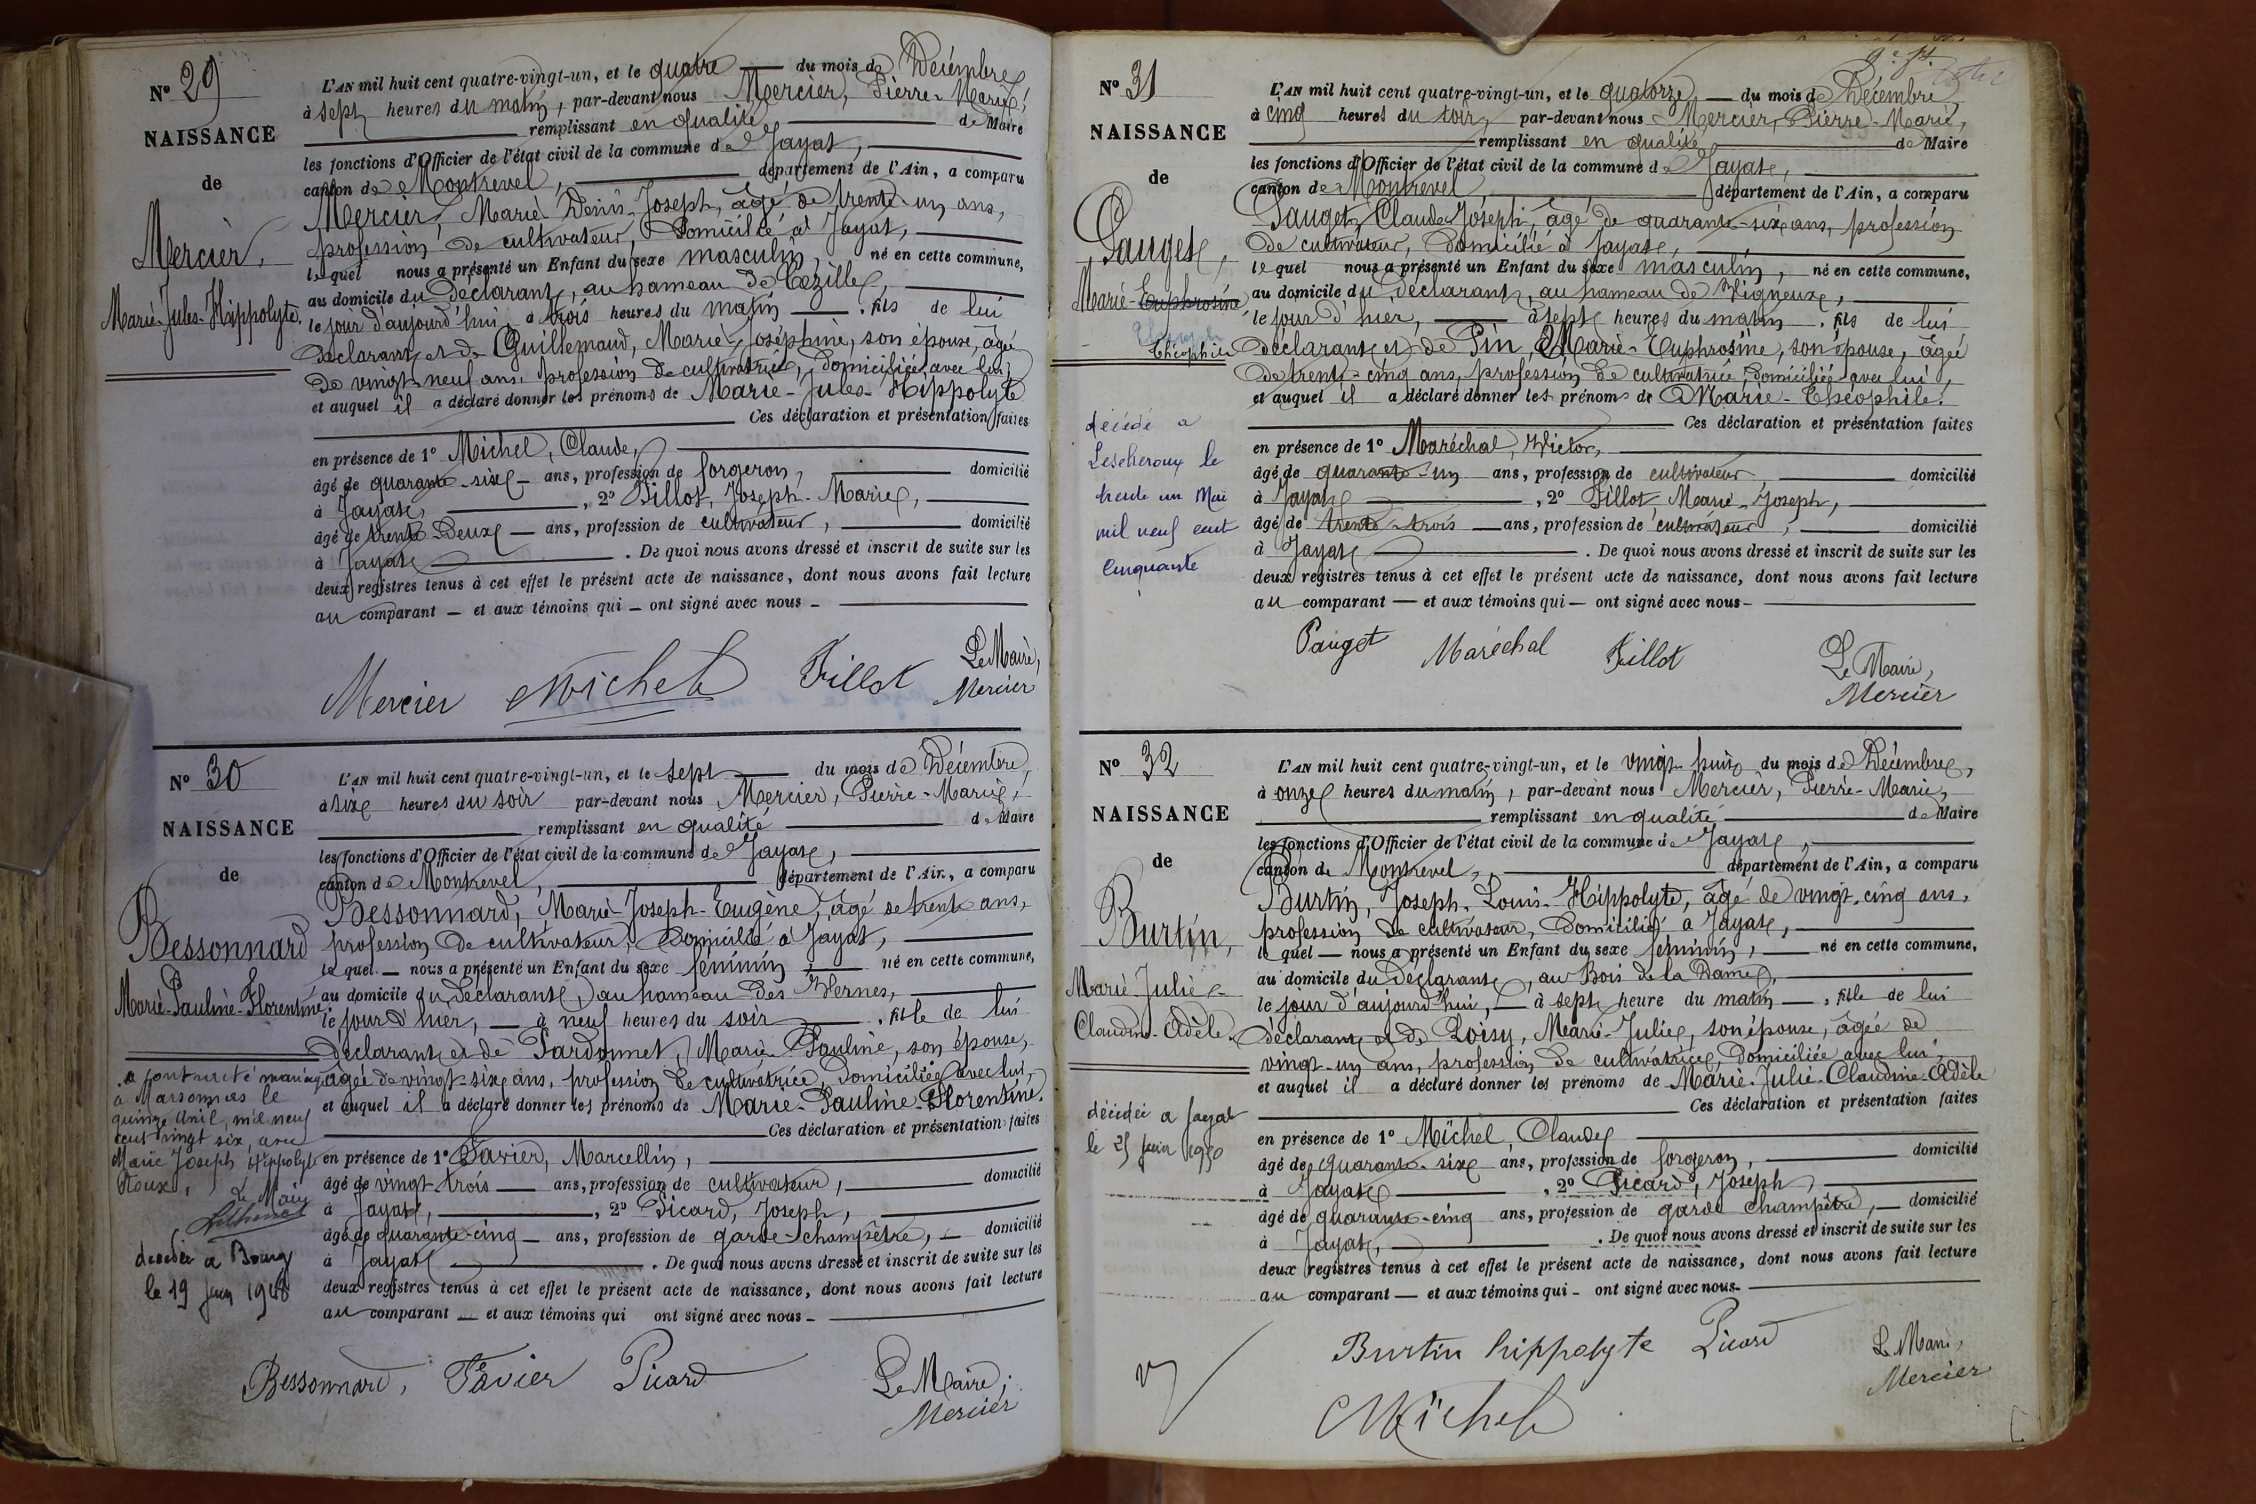 Nº 29
NAISSANCE
de
Mercier,
Marie-Jules-Hippolyte.
L'AN mil huit cent quatre-vingt-un, et le quatre — du mois de Décembre,
à sept heures du matin, par-devant nous Mercier, Pierre-Marie,
remplissant en qualité de Maire
les fonctions d'Officier de l'état civil de la commune de Jayat,
canton de Montrevel, département de l'Ain, a comparu
Mercier, Marie Denis-Joseph, âgé de trente-un ans,
profession de cultivateur, Domicilié à Jayat,
lequel nous a présenté un Enfant du sexe masculin, né en cette commune,
au domicile du Déclarant, au hameau de Cézille,
le jour d'aujourd'hui, à trois heures du matin — , fils de lui
Déclarant et de Guillemaud, Marie, Joséphine, son épouse, âgée
de vingt-neuf ans, profession de cultivatrice, domiciliée avec lui,
et auquel il a déclaré donner les prénoms de Marie-Jules-Hippolyte
Ces déclaration et présentation faites
en présence de 1º Michel, Claude,
âgé de quarante-six — ans, profession de forgeron, domicilié
à Jayat, , 2º Fillot, Joseph-Marie,
âgé de trente Deux — ans, profession de cultivateur, domicilié
à Jayat . De quoi nous avons dressé et inscrit de suite sur les
deux registres tenus à cet effet le présent acte de naissance, dont nous avons fait lecture
au comparant — et aux témoins qui — ont signé avec nous —
Mercier Michel Fillot Le Maire,
Mercier
Nº 30
NAISSANCE
de
Bessonnard
Marie-Pauline-Florentine.
a contracté mariage
à Marsonnas le
quinze Avril, mil neuf
cent vingt six, avec
Marie Joseph Hippolyte
Roux,
Le Maire
décédée à Bourg
le 19 Juin 1948
L'AN mil huit cent quatre-vingt-un, et le sept — du mois de Décembre,
à six heures du soir par-devant nous Mercier, Pierre-Marie,
remplissant en qualité de Maire
les fonctions d'Officier de l'état civil de la commune de Jayat,
canton de Montrevel, département de l'Ain, a comparu
Bessonnard, Marie-Joseph-Eugène, âgé de trente ans,
profession de cultivateur, Domicilié à Jayat,
lequel — nous a présenté un Enfant du sexe féminin, né en cette commune,
au domicile du Déclarant, au hameau des Vernes,
le jour d'hier, — à neuf heures du soir , fille de lui
déclarant et de Pardonnet, Marie-Pauline, son épouse,
âgée de vingt-six ans, profession de cultivatrice, Domiciliée avec lui,
et auquel il a déclaré donner les prénoms de Marie-Pauline-Florentine.
Ces déclaration et présentation faites
en présence de 1º Favier, Marcellin,
âgé de vingt-trois — ans, profession de cultivateur, domicilié
à Jayat, , 2º Picard, Joseph,
âgé de quarante-cinq — ans, profession de garde-champêtre, — domicilié
à Jayat . De quoi nous avons dressé et inscrit de suite sur les
deux registres tenus à cet effet le présent acte de naissance, dont nous avons fait lecture
au comparant — et aux témoins qui ont signé avec nous —
Bessonnard, Favier Picard Le Maire,
Mercier
Nº 31
NAISSANCE
de
Pauget,
Marie-Euphrosine
Théophile
décédé à
Lescheroux le
trente un Mai
mil neuf cent
cinquante
L'AN mil huit cent quatre-vingt-un, et le quatorze — du mois de Décembre
à cinq heures du soir, par-devant nous Mercier, Pierre-Marie,
remplissant en qualité de Maire
les fonctions d'Officier de l'état civil de la commune de Jayat,
canton de Montrevel, département de l'Ain, a comparu
Pauget, Claude Joseph, âgé de quarante-six ans, profession
de cultivateur, domicilié à Jayat,
lequel nous a présenté un Enfant du sexe masculin, né en cette commune,
au domicile du déclarant, au hameau de Vigneux,
le jour d'hier, — à sept heures du matin , fils de lui
déclarant et de Pin, Marie-Euphrosine, son épouse, âgée
de trente-cinq ans, profession de cultivatrice, domiciliée avec lui,
et auquel il a déclaré donner les prénoms de Marie-Théophile.
Ces déclaration et présentation faites
en présence de 1º Maréchal, Victor,
âgé de quarante-un ans, profession de cultivateur, domicilié
à Jayat , 2º Fillot, Marie-Joseph,
âgé de trente-trois — ans, profession de cultivateur, domicilié
à Jayat . De quoi nous avons dressé et inscrit de suite sur les
deux registres tenus à cet effet le présent acte de naissance, dont nous avons fait lecture
au comparant — et aux témoins qui — ont signé avec nous —
Pauget Maréchal Fillot Le Maire,
Mercier
Nº 32
NAISSANCE
de
Burtin,
Marie Julie-
Claudine-Adèle.
décédée à Jayat
le 25 Juin 1950
L'AN mil huit cent quatre-vingt-un, et le vingt-huit du mois de Décembre,
à onze heures du matin, par-devant nous Mercier, Pierre-Marie,
remplissant en qualité de Maire
les fonctions d'Officier de l'état civil de la commune de Jayat,
canton de Montrevel, département de l'Ain, a comparu
Burtin, Joseph-Louis-Hippolyte, âgé de vingt-cinq ans,
profession de cultivateur, Domicilié à Jayat,
lequel — nous a présenté un Enfant du sexe féminin, né en cette commune,
au domicile du Déclarant, au Bois de la Dame,
le jour d'aujourd'hui, — à sept heure du matin — , fille de lui
déclarant et de Loisy, Marie-Julie, son épouse, âgée de
vingt-un ans, profession de cultivatrice, Domiciliée avec lui,
et auquel il a déclaré donner les prénoms de Marie-Julie-Claudine-Adèle
Ces déclaration et présentation faites
en présence de 1º Michel, Claude
âgé de quarante-six ans, profession de forgeron, domicilié
à Jayat , 2º Picard, Joseph,
âgé de quarante-cinq ans, profession de garde champêtre, — domicilié
à Jayat, . De quoi nous avons dressé et inscrit de suite sur les
deux registres tenus à cet effet le présent acte de naissance, dont nous avons fait lecture
au comparant — et aux témoins qui — ont signé avec nous —
Burtin hippolyte Picard Le Maire,
Mercier
Michel